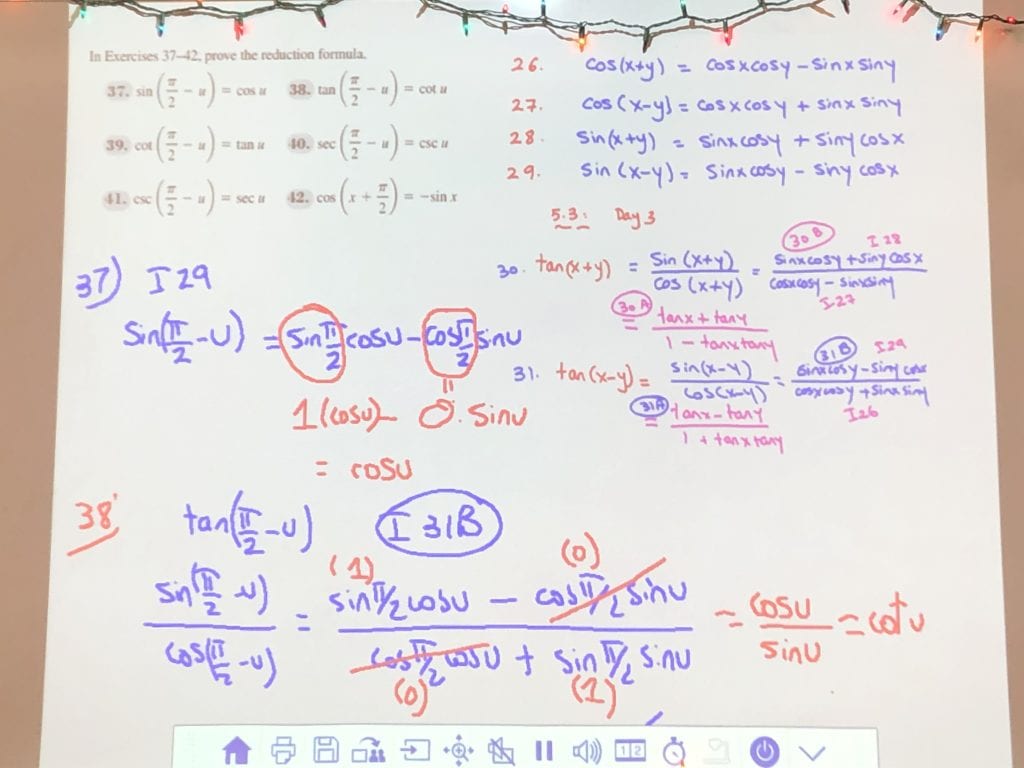 In Exercises 37–42, prove the reduction formula.
37. sin(π/2 − u) = cos u 38. tan(π/2 − u) = cot u
39. cot(π/2 − u) = tan u 40. sec(π/2 − u) = csc u
41. csc(π/2 − u) = sec u 42. cos(x + π/2) = −sin x
26. cos(x+y) = cosxcosy − sinxsiny
27. cos(x−y) = cosxcosy + sinxsiny
28. sin(x+y) = sinxcosy + sinycosx
29. sin(x−y) = sinxcosy − sinycosx
5.3: Day 3
30B I28
30. tan(x+y) = sin(x+y)/cos(x+y) = sinxcosy+sinycosx/cosxcosy−sinxsiny
I27
30A = tanx+tany/1−tanxtany
31B I29
31. tan(x−y) = sin(x−y)/cos(x−y) = sinxcosy−sinycosx/cosxcosy+sinxsiny
I26
31A = tanx−tany/1+tanxtany
37) I29
sin(π/2−U) = sinπ/2 cosU − cosπ/2 sinU
1(cosU)− 0·sinU
= cosU
38. tan(π/2−U) I 31B
(1) (0)
sin(π/2−U)/cos(π/2−U) = sinπ/2cosU − cosπ/2sinU/cosπ/2cosU + sinπ/2sinU = cosU/sinU = cotU
(0) (1)
1 2